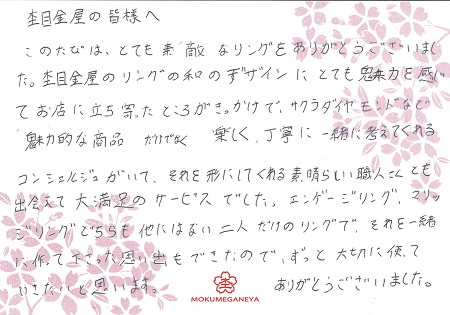 杢目金屋の皆様へ
このたびは、とても素敵なリングをありがとうございまし
た。杢目金屋のリングの和のデザインにとても魅力を感じ
てお店に立ち寄ったところがきっかけで、サクラダイヤモンドなど
魅力的な商品だけでなく楽しく、丁寧に一緒に考えてくれる
コンシェルジュがいて、それを形にしてくれる素晴らしい職人さんとも
出会えて大満足のサービスでした。エンゲージリング、マリッ
ジリングどちらも他にはない二人だけのリングで、それを一緒
に作って下さった思い出もできたので、ずっと大切に使って
いきたいと思います。ありがとうございました。
MOKUMEGANEYA